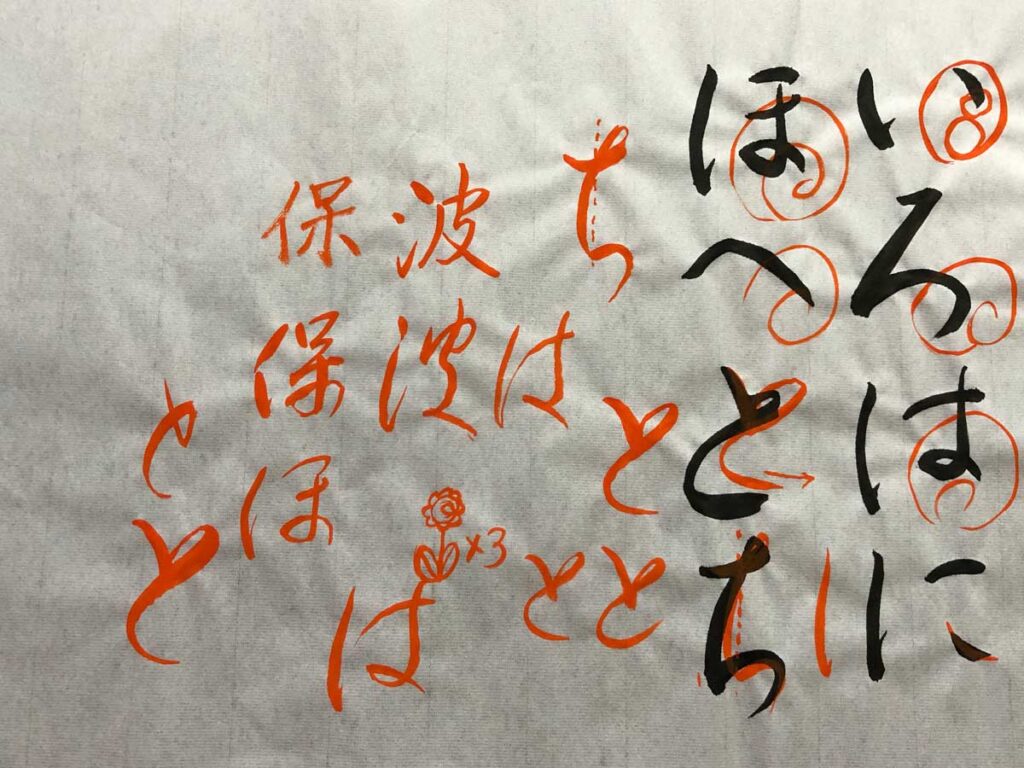 いろはに
ほへとち
ち
と
とと
は
波
波
は
×3
保
保
ほ
と
と